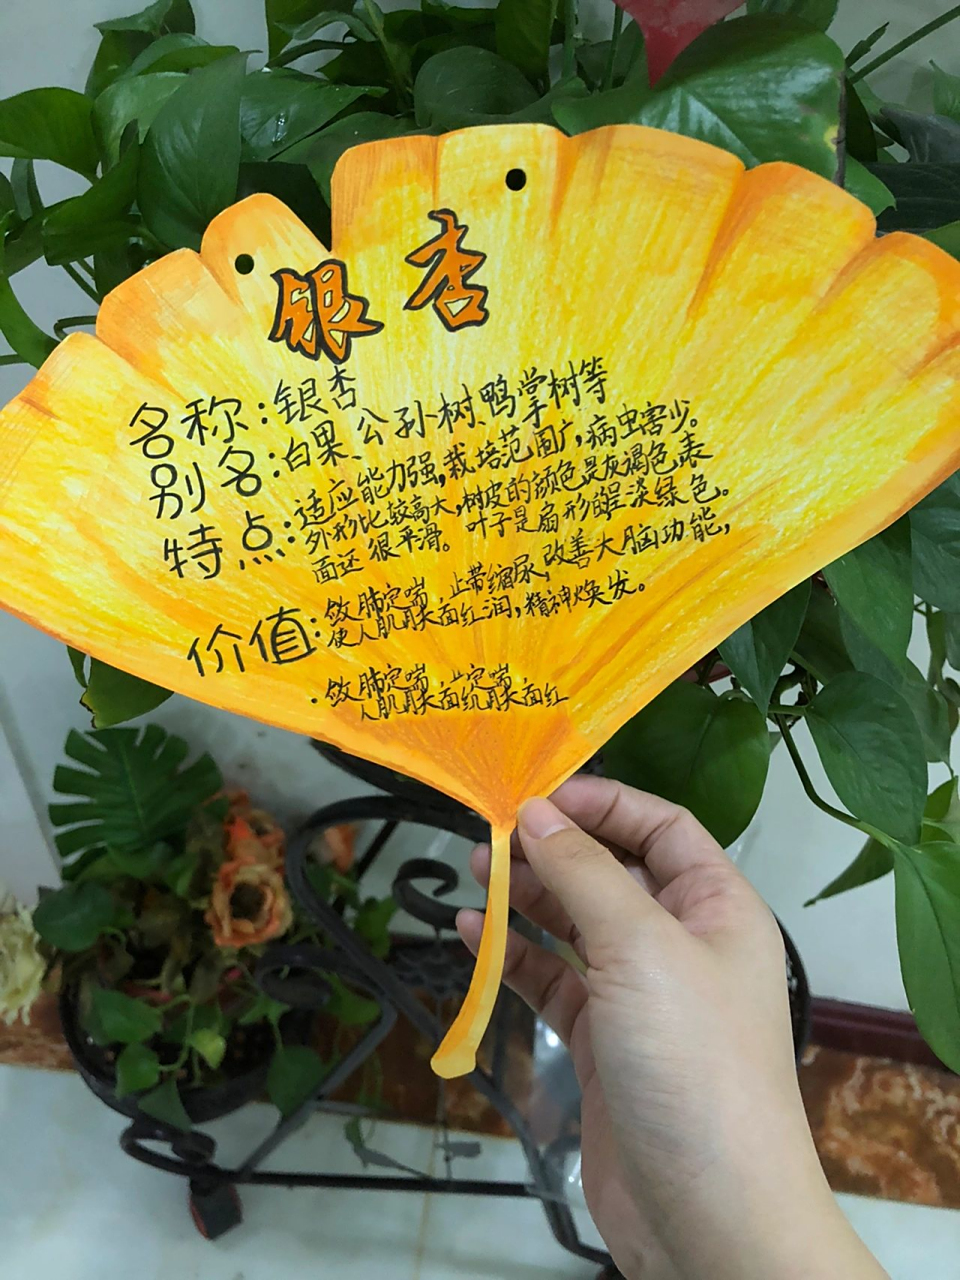 银杏
名称:银杏
别名:白果、公孙树、鸭掌树等
特点:适应能力强,栽培范围广,病虫害少。
外形比较高大,树皮的颜色是灰褐色表
面还很平滑。叶子是扇形的呈淡绿色。
价值:敛肺定喘,止带缩尿,改善大脑功能,
使人肌肤面红润,精神焕发。
敛肺定喘,止定喘